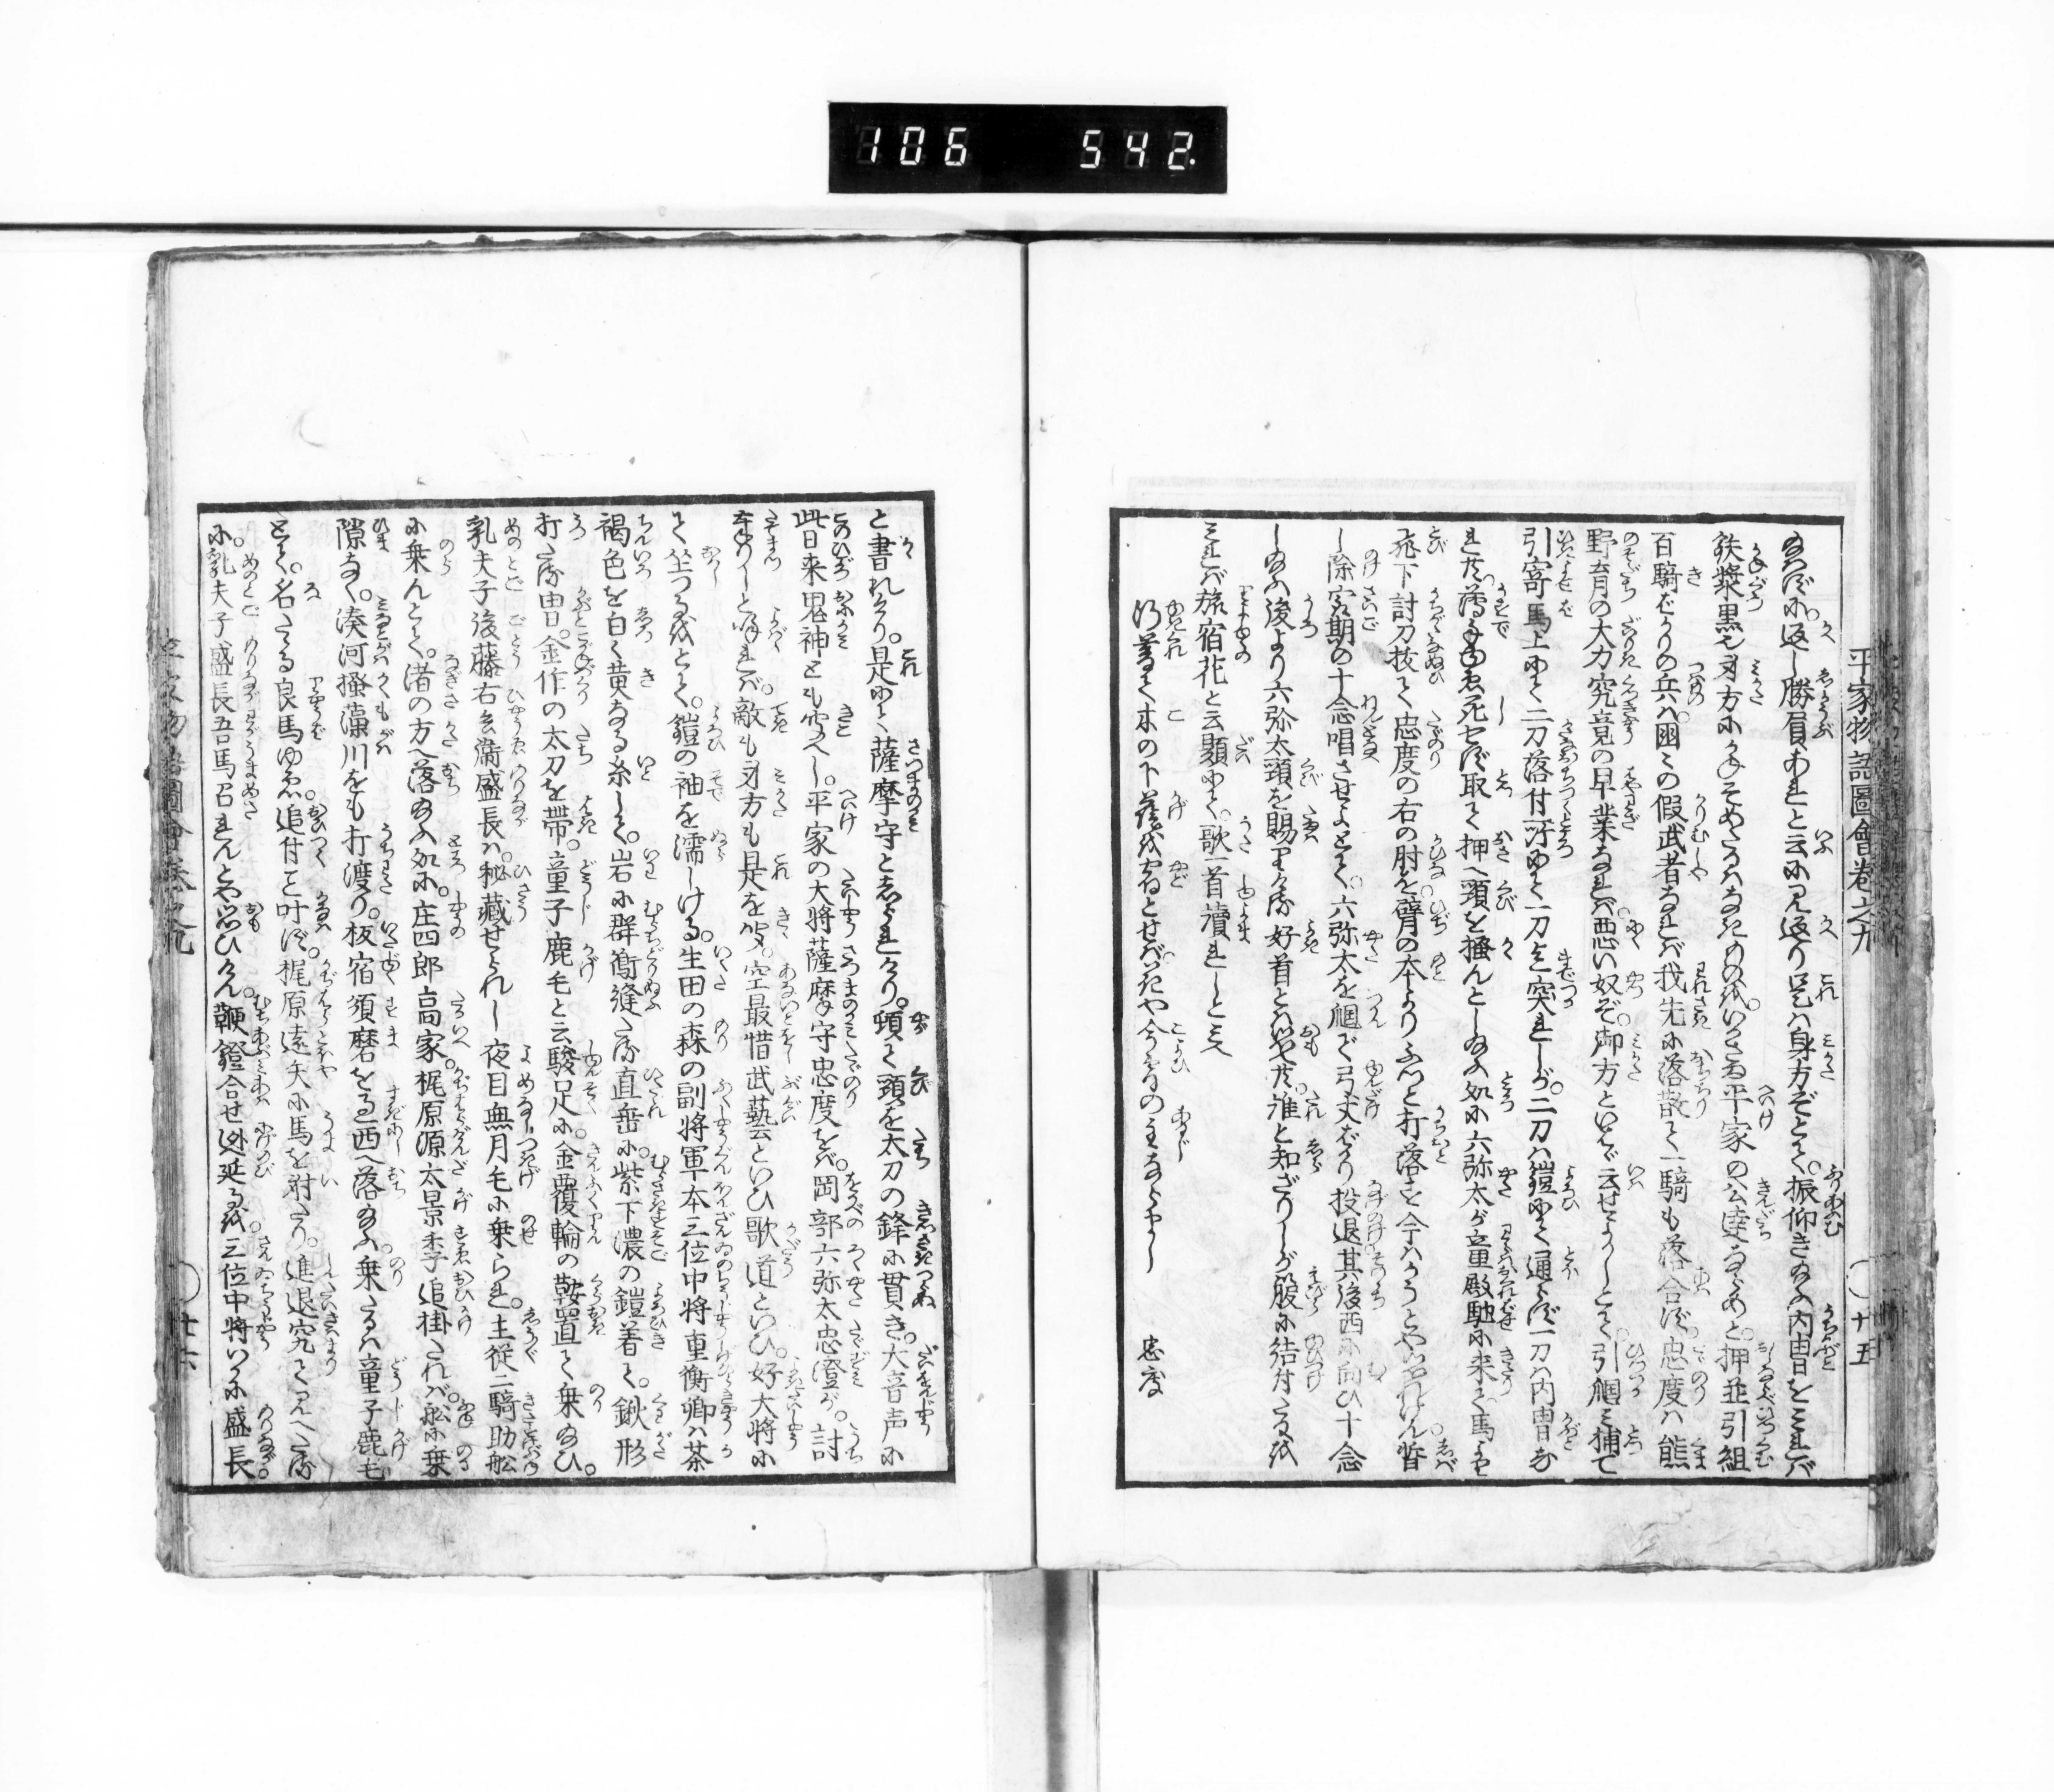 106 542.
平家物語圖會卷之九 十五
なハずに。返し勝負あれと云に見返り是ハ身方ぞとて。振仰きなふ内冑をミれバ
鉄漿黒也身方にかねそめたるハなきものを。いかさま平家の公達なるめと。押並引組
百騎ばかりの兵ハ。国々の仮武者なれバ我先に落散て一騎も落合ず。忠度ハ熊
野育の大力究竟の早業なれバ。悪い奴ぞ。御方といはゞ云せよかしとて。引掴ミ捕て
引寄馬上にて二刀落付所にて一刀まで突れしが。二刀ハ鎧にて通らず一刀ハ内冑な
れ共。薄手ゆゑ死せず取て押へ頸を掻んとしなふ処に六弥太が童殿馳に来て馬より
飛下討刀抜て忠度の右の肘を。臂の本よりふつと打落を今ハかうとやおもハれけん。暫
し除。最期の十念唱させよとて。六弥太を掴で弓丈ばかり投退其後西に向ひ十念
しなふ後より六弥太頸を賜りける好首とハ思へ共。誰と知ざりしが箙に結付たる紙
ミれバ旅宿花と云題にて。歌一首讀れしとミへ
行暮て木の下蔭を宿とせば。花や今宵の主ならまし 忠度
と書れけり。是にて薩摩守としられけり。頓て頸を太刀の鋒に貫き。大音声に
此日来鬼神とも聞へし。平家の大将薩摩守忠度をバ。岡部六弥太忠澄が。討
奉りしと呼れバ。敵も身方も是を聞。空最惜武藝といひ歌道といひ。好大将に
て坐つるをとて。鎧の袖を濡しける。生田の森の副将軍本三位中将重衡卿ハ茶
褐色を白く黄なる糸して。岩に群鵆縫たる直垂に。紫下濃の鎧着て。鍬形
打たる冑。金作の太刀を帯。童子鹿毛と云駿足に。金覆輪の鞍置て乗なひ。
乳夫子後藤右兵衛盛長ハ。秘蔵せられし夜目無月毛に乗られ。主従二騎助舩
に乗んとて。渚の方へ落なふ処に。庄四郎高家。梶原源太景季追掛たれバ。舩に乗
隙なく。湊河掻藻川をも打渡り。板宿須磨をも西へ落なふ。乗たるハ童子鹿毛
とて。名たる良馬ゆゑ。追付こと叶ず。梶原遠矢に馬を射たり。進退究て見へたる
に。乳夫子盛長吾馬召れんとや思ひけん。鞭鐙合せ逃延るを。三位中将いかに盛長
平家物語圖會卷之九 廿六